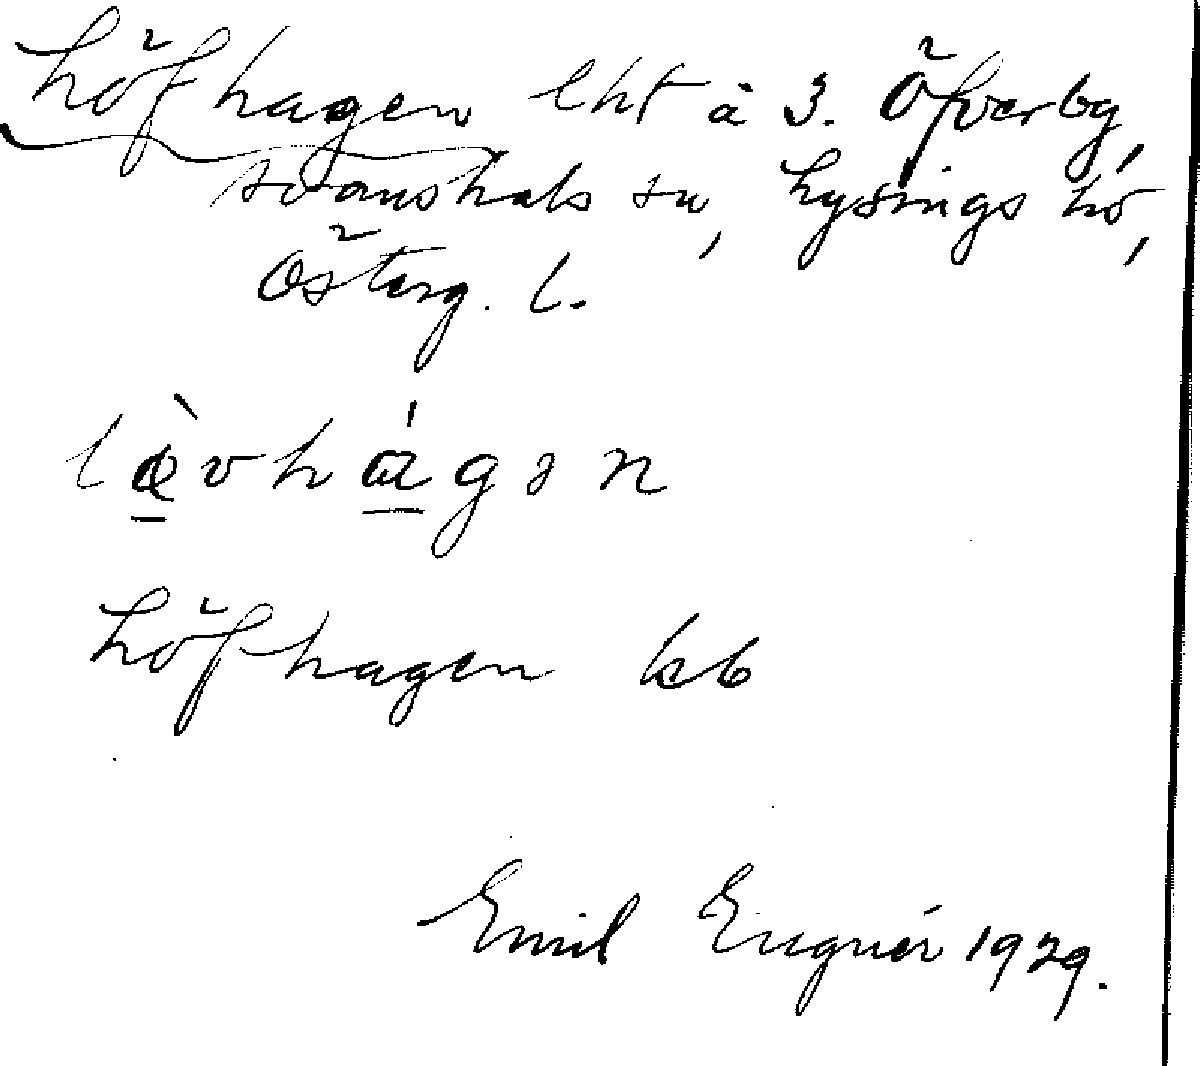 Löfhagen lht å 3. Öfverby,
Svanshals sn, Lysings hd,
Österg. l.
lèvhágən
Löfhagen kb
Emil Engnér 1929.